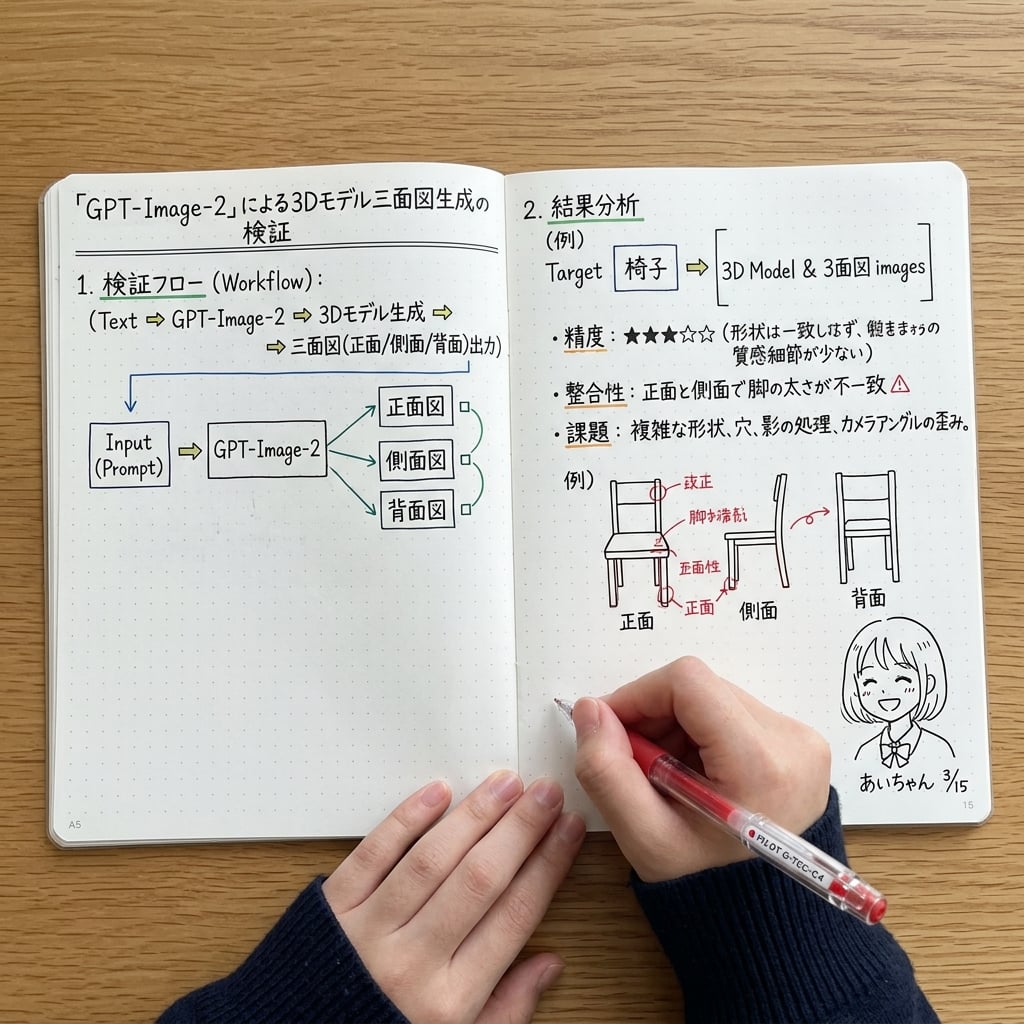 「GPT-Image-2」による3Dモデル三面図生成の
検証
1. 検証フロー (Workflow):
(Text ⇨ GPT-Image-2 ⇨ 3Dモデル生成 ⇨
⇨ 三面図(正面/側面/背面)出力)
Input
(Prompt)
⇨
GPT-Image-2
正面図
側面図
背面図
A5
2. 結果分析
(例)
Target 椅子 ⇨ [3D Model & 3面図 images]
・精度: ★★★☆☆ (形状は一致しはず、
質感細節が少ない)
・整合性: 正面と側面で脚の太さが不一致 ⚠
・課題: 複雑な形状、穴、影の処理、カメラアングルの歪み。
例)
正面
側面
背面
正面
あいちゃん 3/15
15
PILOT G-TEC-C4